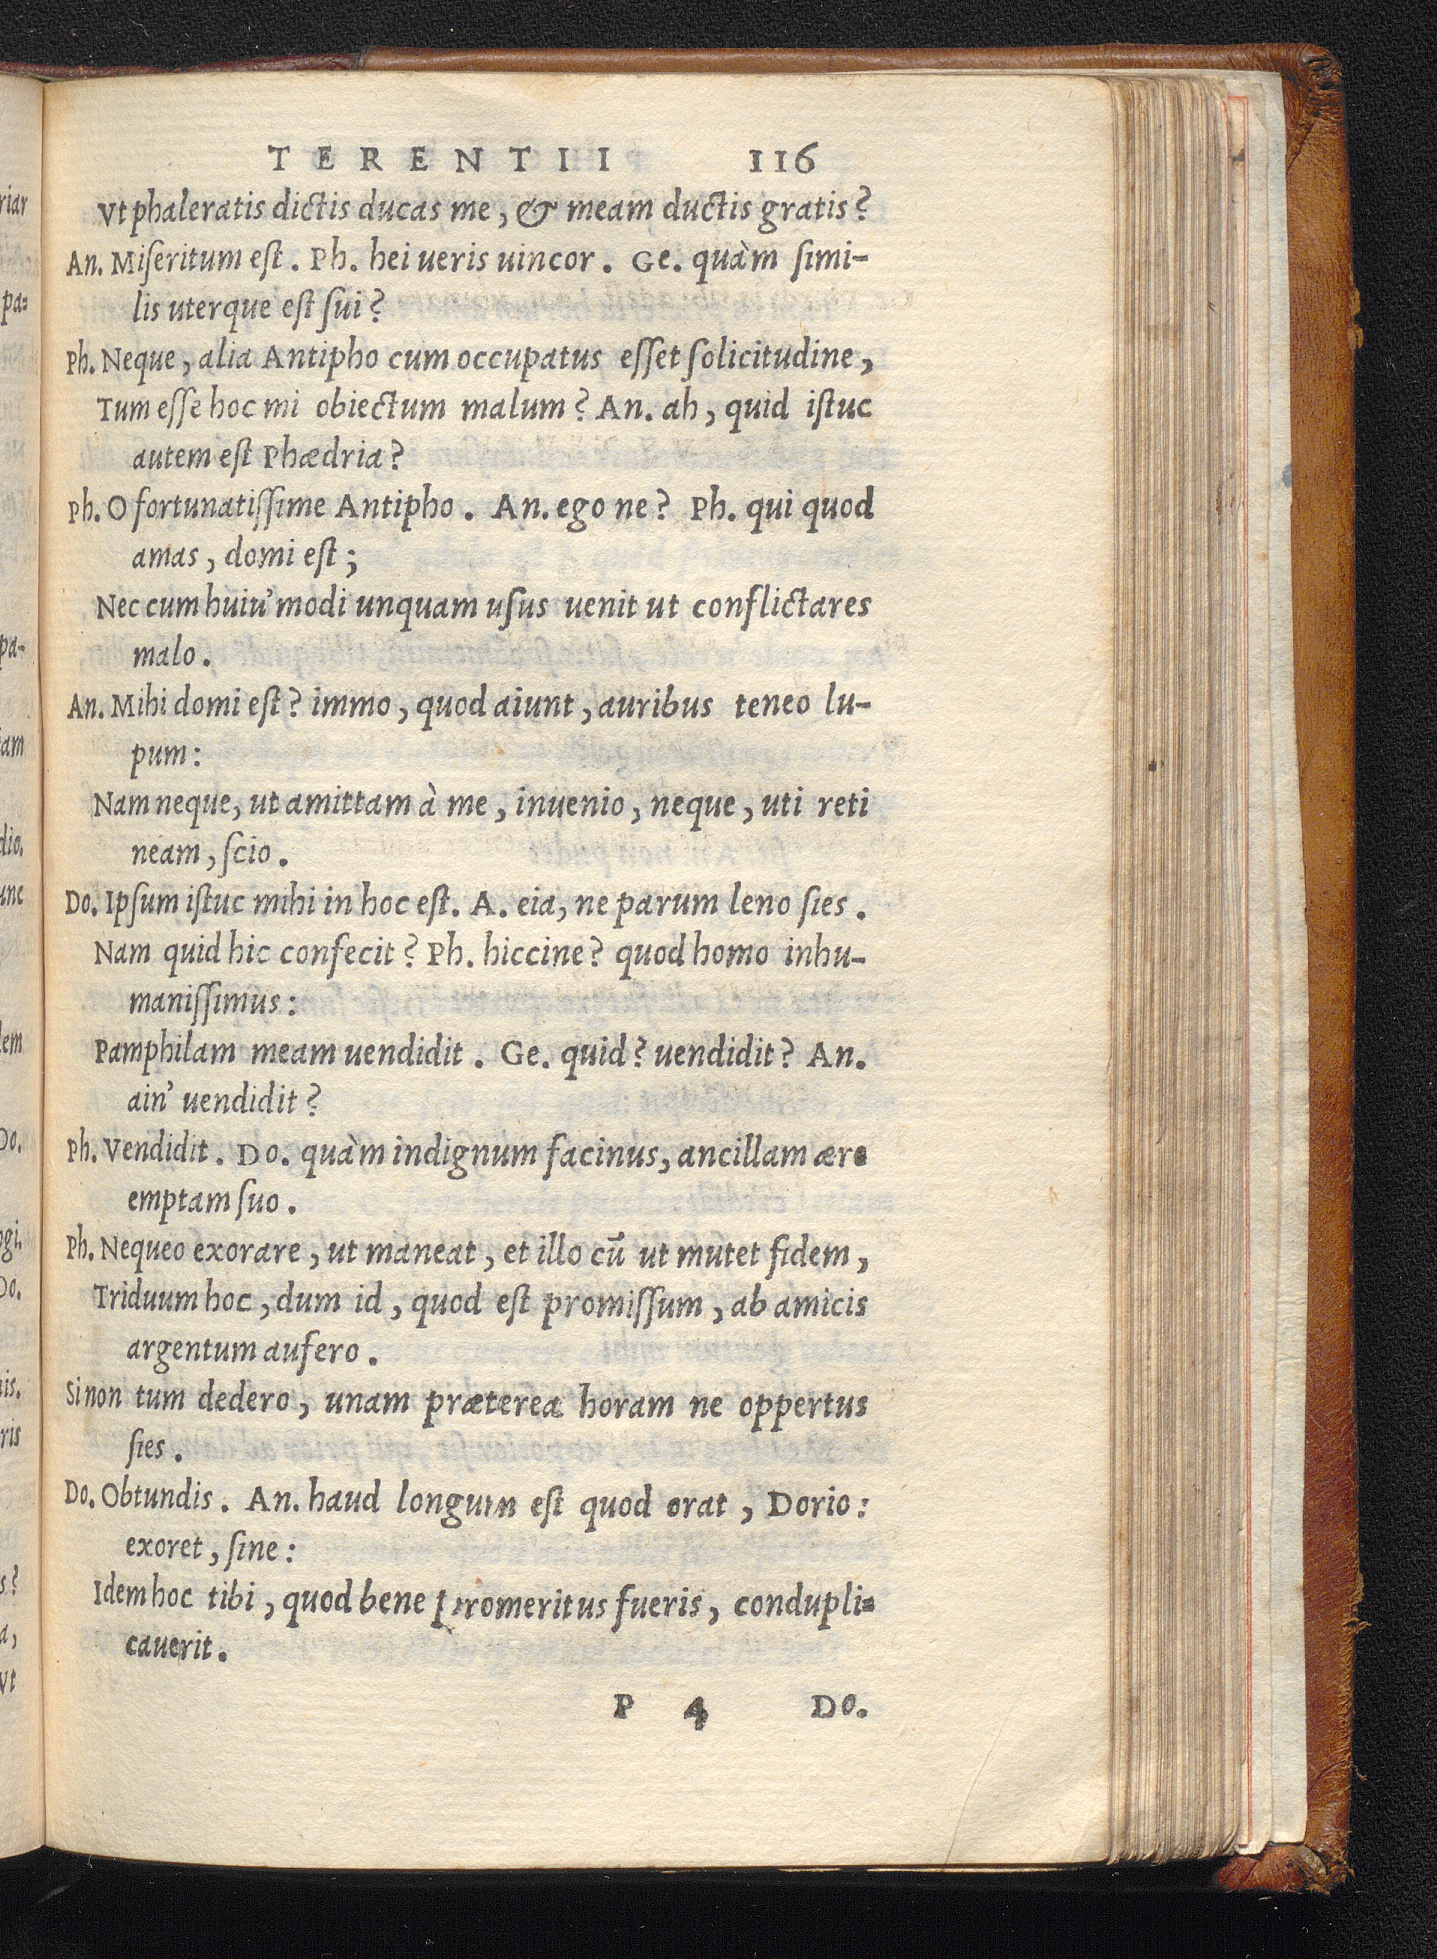 TERENTII 116
Vt phaleratis dictis ducas me, & meam ductis gratis?
An. Miseritum est. Ph. hei ueris uincor. Ge. quàm simi-
lis uterque est sui?
Ph. Neque, alia Antipho cum occupatus esset solicitudine,
Tum esse hoc mi obiectum malum? An. ah, quid istuc
autem est Phædria?
Ph. O fortunatissime Antipho. An. ego ne? Ph. qui quod
amas, domi est;
Nec cum huiu' modi unquam usus uenit ut conflictares
malo.
An. Mihi domi est? immo, quod aiunt, auribus teneo lu-
pum:
Nam neque, ut amittam à me, inuenio, neque, uti reti
neam, scio.
Do. Ipsum istuc mihi in hoc est. A. eia, ne parum leno sies.
Nam quid hic confecit? Ph. hiccine? quod homo inhu-
manissimus:
Pamphilam meam uendidit. Ge. quid? uendidit? An.
ain' uendidit?
Ph. Vendidit. Do. quàm indignum facinus, ancillam ære
emptam suo.
Ph. Nequeo exorare, ut maneat, et illo cū ut mutet fidem,
Triduum hoc, dum id, quod est promissum, ab amicis
argentum aufero.
Si non tum dedero, unam præterea horam ne oppertus
sies.
Do. Obtundis. An. haud longum est quod orat, Dorio:
exoret, sine:
Idem hoc tibi, quod bene promeritus fueris, condupli-
cauerit.
P 4 Do.